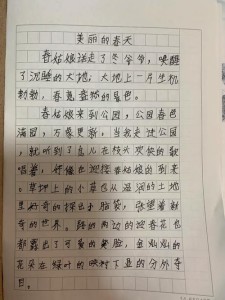 美丽的春天
春姑娘送走了冬爷爷，唤醒
了沉睡的大地，大地上一片生机
勃勃，春意盎然的景色。
春姑娘来到公园，公园春色
满园，万象更新，当我走过公园
，就听到了鸟儿在枝头欢快的歌
唱着，好像在迎接春姑娘的到来
。草地上的小草也从湿润的土地
里好奇的探出小脑袋，张望着新
奇的世界。路的两边的迎春花也
都露出了可爱的笑脸，金灿灿的
花朵在绿叶的映衬下显的分外夺
目。